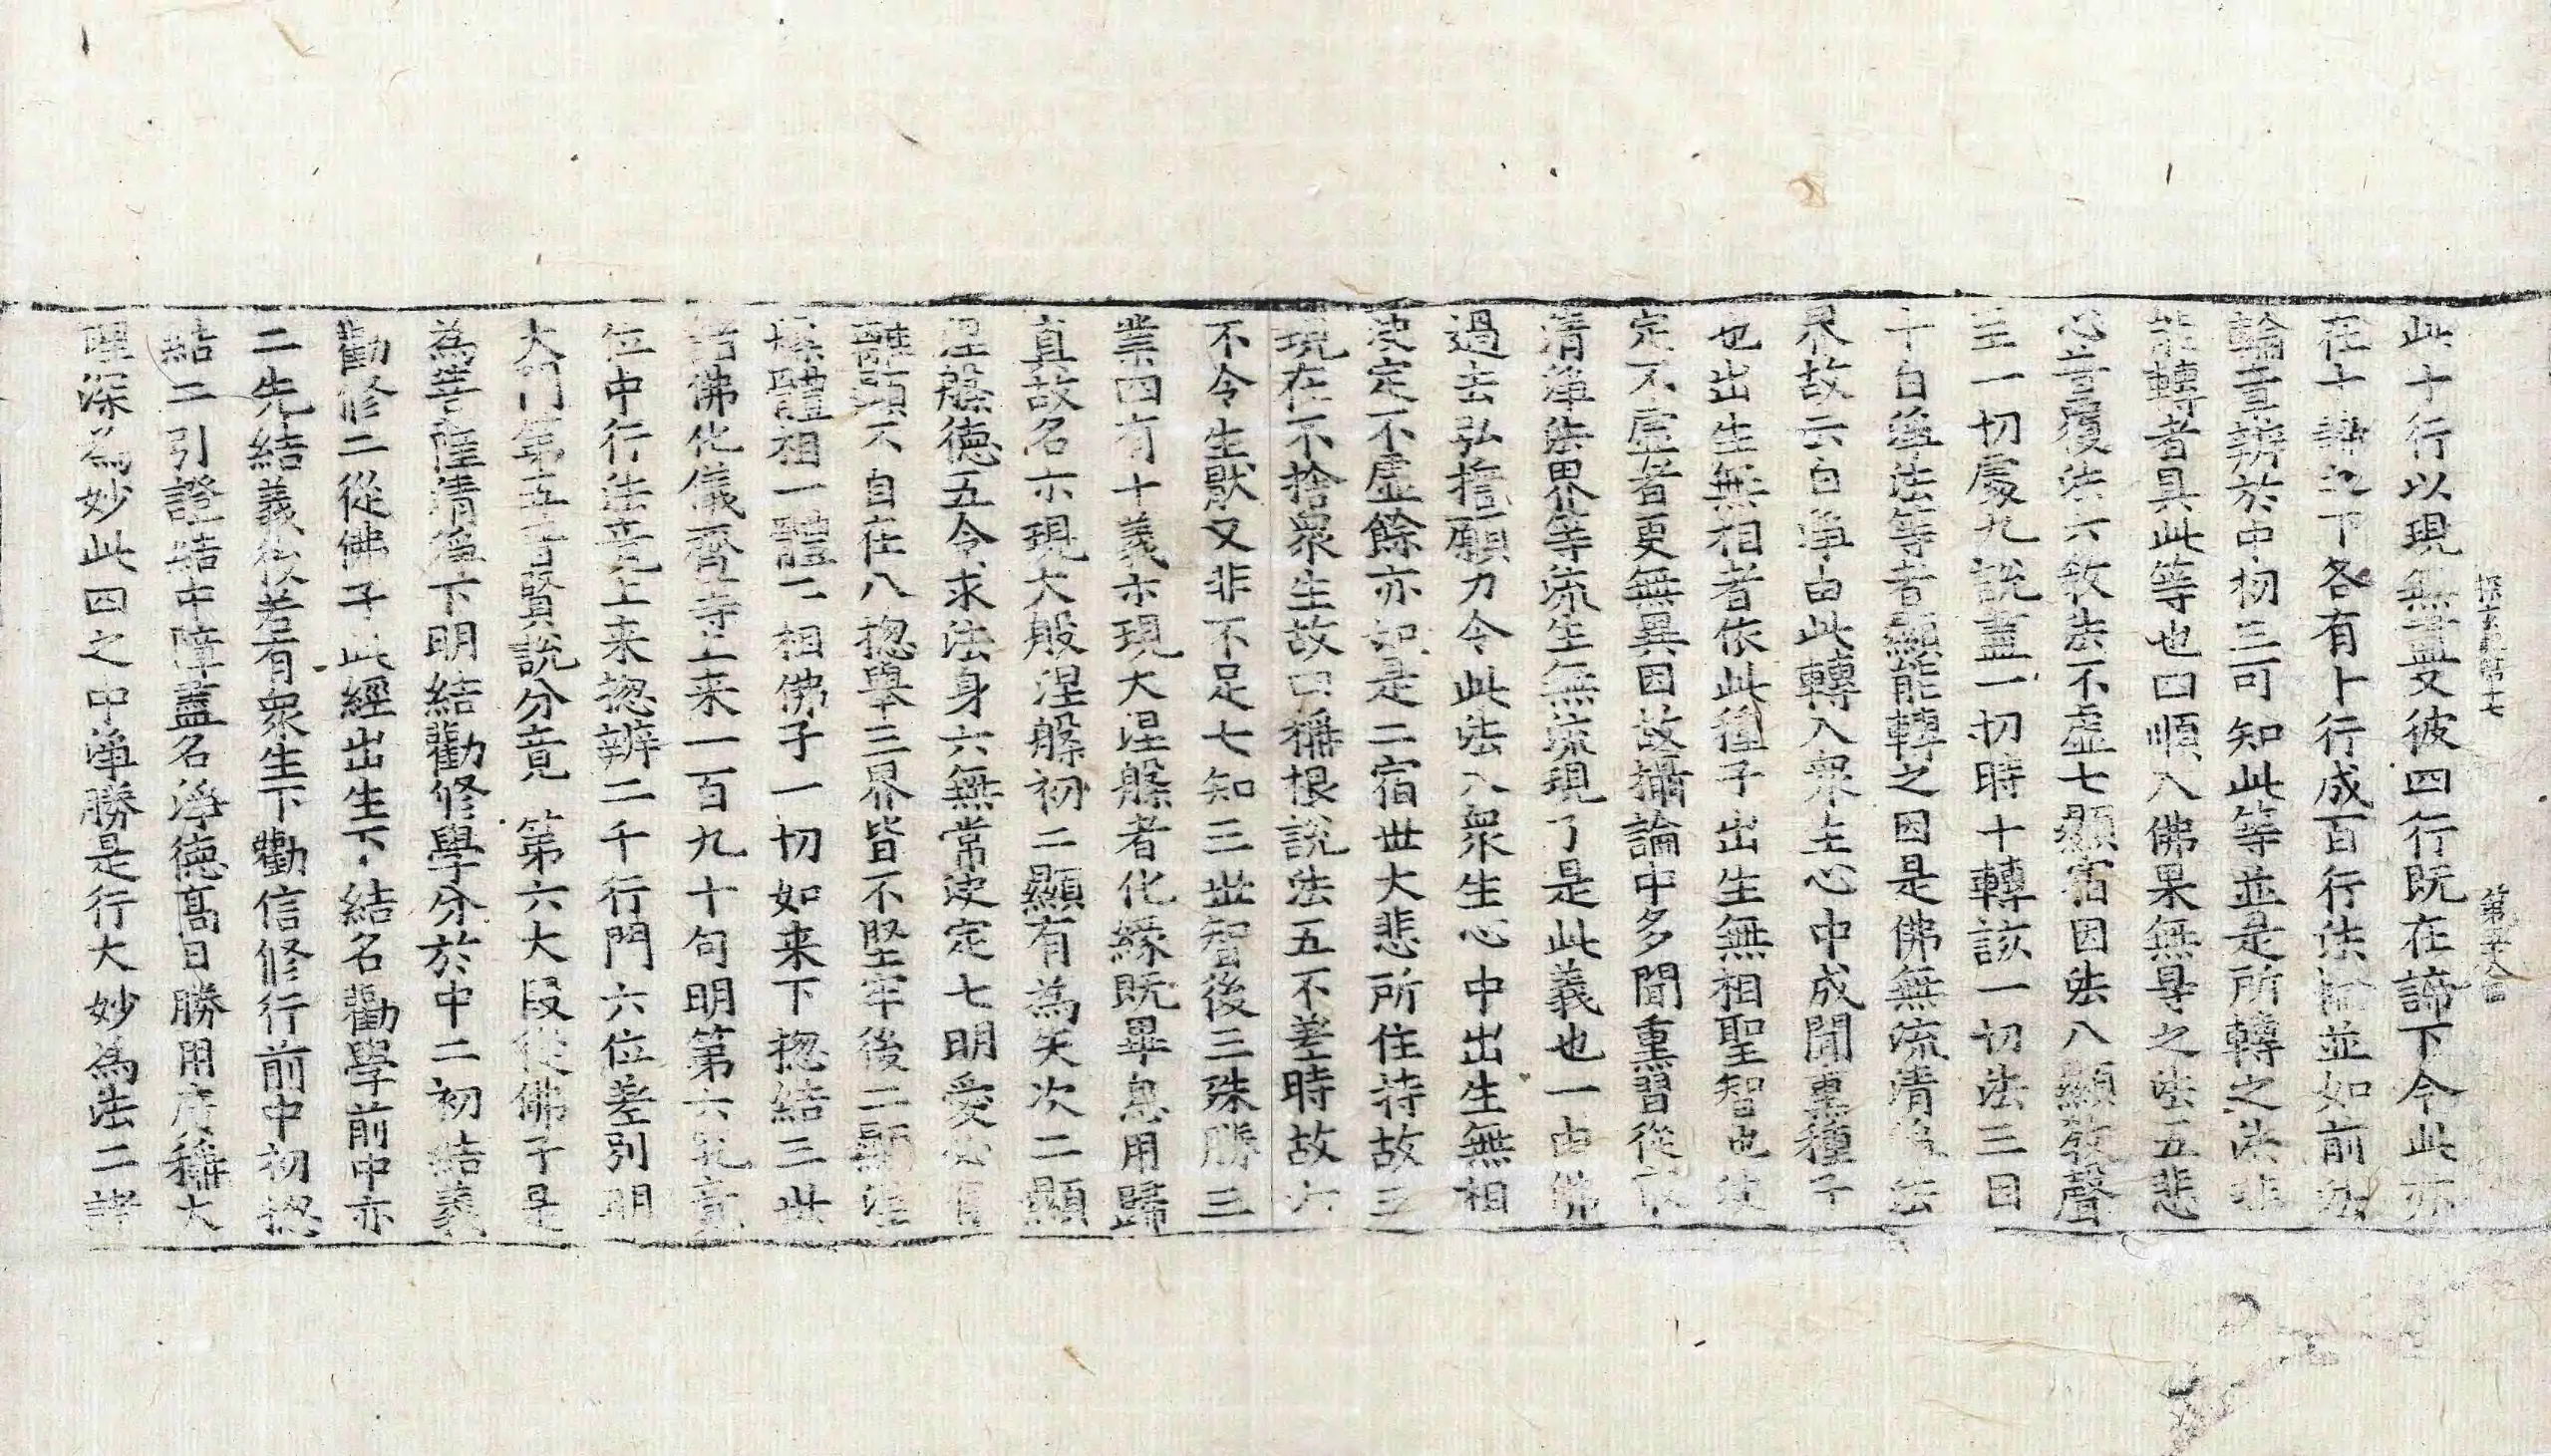 探玄記第十七　第二十八
此十行以現無盡又彼四行既在諦下今此亦
在十諦之下各有十行成百行法輪並如前於
輪章辨於中初三可知此等並是所轉之法非
能轉者具此等也四順入佛果無㝵之法五悲
心言覆法六教法不虛七顯宿因法八顯教聲
主一切處九說盡一切時十轉該一切法三曰
十白淨法等者顯能轉之因是佛無流清淨法
界故云白淨由此轉入眾生心中成聞熏種子
也出生無相者依此種子出生無相聖智也決
定不虛者更無異因故攝論中多聞熏習從
清淨法界等流生無流現了是此義也一由佛
過去弘擔願力令此法入眾生心中出生無相
決定不虛餘亦如是二宿世大悲所住持故三
現在不捨眾生故四稱根說法五不差時故六
不令生猒又非不足七知三世智後三殊勝三
業四有十義示現大涅槃者化緣既畢息用歸
真故名示現大般涅槃初二顯有為矢次二顯
涅槃德五令求法身六無常決定七明愛必
離顯不自在八揔舉三界皆不堅牢後二顯涅
槃體相一體二相佛子一切如来下揔結三世
諸佛化儀齊等上来一百九十句明第六究竟
位中行法竟上来揔辨二千行門六位差別明
大門第五普賢說分竟　第六大段從佛子是
為菩薩清淨下明結勸修學分於中二初結義
勸修二從佛子此經出生下結名勸學前中亦
二先結義後若有眾生下勸信修行前中初揔
結二引證結中障盡名淨德高曰勝用廣稱大
理深為妙此四之中淨勝是行大妙為法二諸